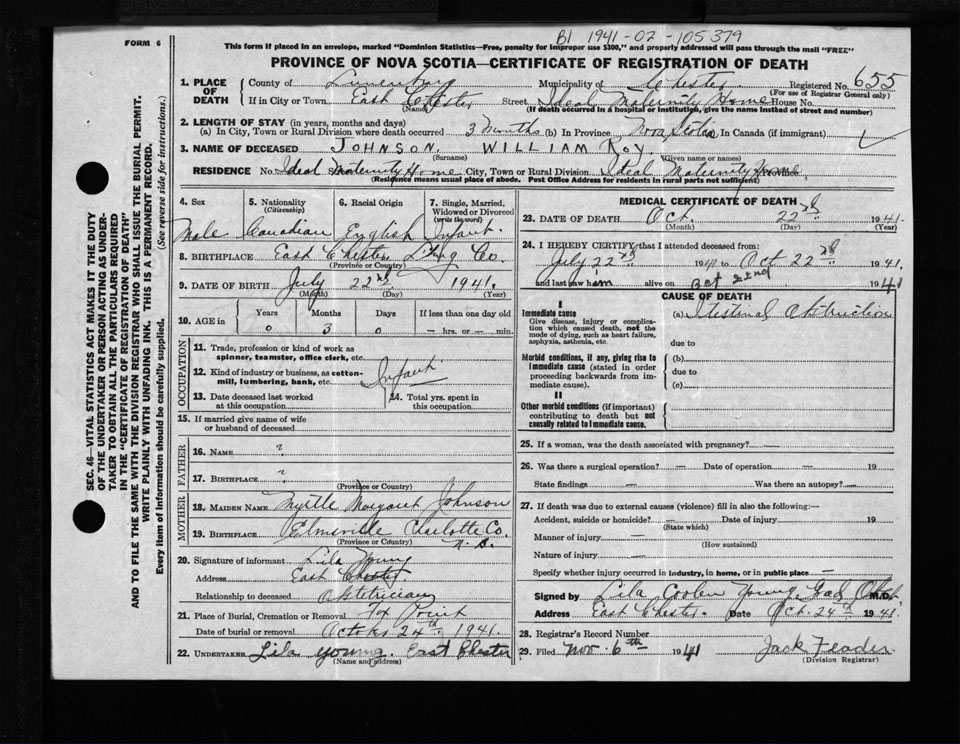 B1 1941-02-105379
FORM 6
This form if placed in an envelope, marked "Dominion Statistics—Free, penalty for improper use $300," and properly addressed will pass through the mail "FREE"
PROVINCE OF NOVA SCOTIA—CERTIFICATE OF REGISTRATION OF DEATH
SEC. 46—VITAL STATISTICS ACT MAKES IT THE DUTY
OF THE UNDERTAKER OR PERSON ACTING AS UNDER-
TAKER TO OBTAIN ALL THE PARTICULARS REQUIRED
IN THE "CERTIFICATE OF REGISTRATION OF DEATH"
AND TO FILE THE SAME WITH THE DIVISION REGISTRAR WHO SHALL ISSUE THE BURIAL PERMIT.
WRITE PLAINLY WITH UNFADING INK. THIS IS A PERMANENT RECORD.
Every item of information should be carefully supplied. (See reverse side for instructions.)
1. PLACE OF DEATH
County of Lunenburg Municipality of Chester Registered No. 655
(For use of Registrar General only)
If in City or Town East Chester Street Ideal Maternity Home House No.
(Name) (If death occurred in a hospital or institution, give the name instead of street and number)
2. LENGTH OF STAY (in years, months and days)
(a) In City, Town or Rural Division where death occurred 3 Months (b) In Province Nova Scotia In Canada (if immigrant)
3. NAME OF DECEASED JOHNSON. WILLIAM ROY.
(Surname) (Given name or names)
RESIDENCE No. Ideal Maternity Home City, Town or Rural Division Ideal Maternity Home Province
(Residence means usual place of abode. Post Office Address for residents in rural parts not sufficient)
4. Sex 5. Nationality (Citizenship) 6. Racial Origin 7. Single, Married, Widowed or Divorced (write the word)
Male Canadian English Infant.
8. BIRTHPLACE East Chester Lbg Co.
(Province or Country)
9. DATE OF BIRTH July 22nd 1941.
(Month) (Day) (Year)
10. AGE in Years Months Days If less than one day old
0 3 0 — hrs. or — min.
OCCUPATION
11. Trade, profession or kind of work as
spinner, teamster, office clerk, etc.
12. Kind of industry or business, as cotton-
mill, lumbering, bank, etc. Infant
13. Date deceased last worked at this occupation
14. Total yrs. spent in this occupation
15. If married give name of wife
or husband of deceased
FATHER
16. NAME ?
17. BIRTHPLACE ?
(Province or Country)
MOTHER
18. MAIDEN NAME Myrtle Margaret Johnson
19. BIRTHPLACE Elmsville Charlotte Co.
(Province or Country) N.B.
20. Signature of informant Lila Young
Address East Chester
Relationship to deceased Obstetrician
21. Place of Burial, Cremation or Removal Fox Point
Date of burial or removal October 24th 1941.
22. UNDERTAKER Lila Young. East Chester
(Name and address)
MEDICAL CERTIFICATE OF DEATH
23. DATE OF DEATH Oct. 22nd 1941.
(Month) (Day) (Year)
24. I HEREBY CERTIFY that I attended deceased from:
July 22nd 1941 to Oct 22nd 1941.
and last saw him alive on Oct 22nd 1941
CAUSE OF DEATH
I
Immediate cause (a) Intestinal Obstruction
Give disease, injury or complication which caused death, not the mode of dying, such as heart failure, asphyxia, asthenia, etc.
due to
Morbid conditions, if any, giving rise to immediate cause (stated in order proceeding backwards from immediate cause).
(b)
due to
(c)
II
Other morbid conditions (if important) contributing to death but not causally related to immediate cause.
25. If a woman, was the death associated with pregnancy? —
26. Was there a surgical operation? — Date of operation — 19
State findings — Was there an autopsy? —
27. If death was due to external causes (violence) fill in also the following:—
Accident, suicide or homicide? — Date of injury 19
(State which)
Manner of injury —
(How sustained)
Nature of injury —
Specify whether injury occurred in industry, in home, or in public place —
Signed by Lila Coolen Young, Grad M.D.
Address East Chester. Date Oct. 24th 1941
28. Registrar's Record Number
29. Filed Nov. 6th 1941 Jack
(Division Registrar)